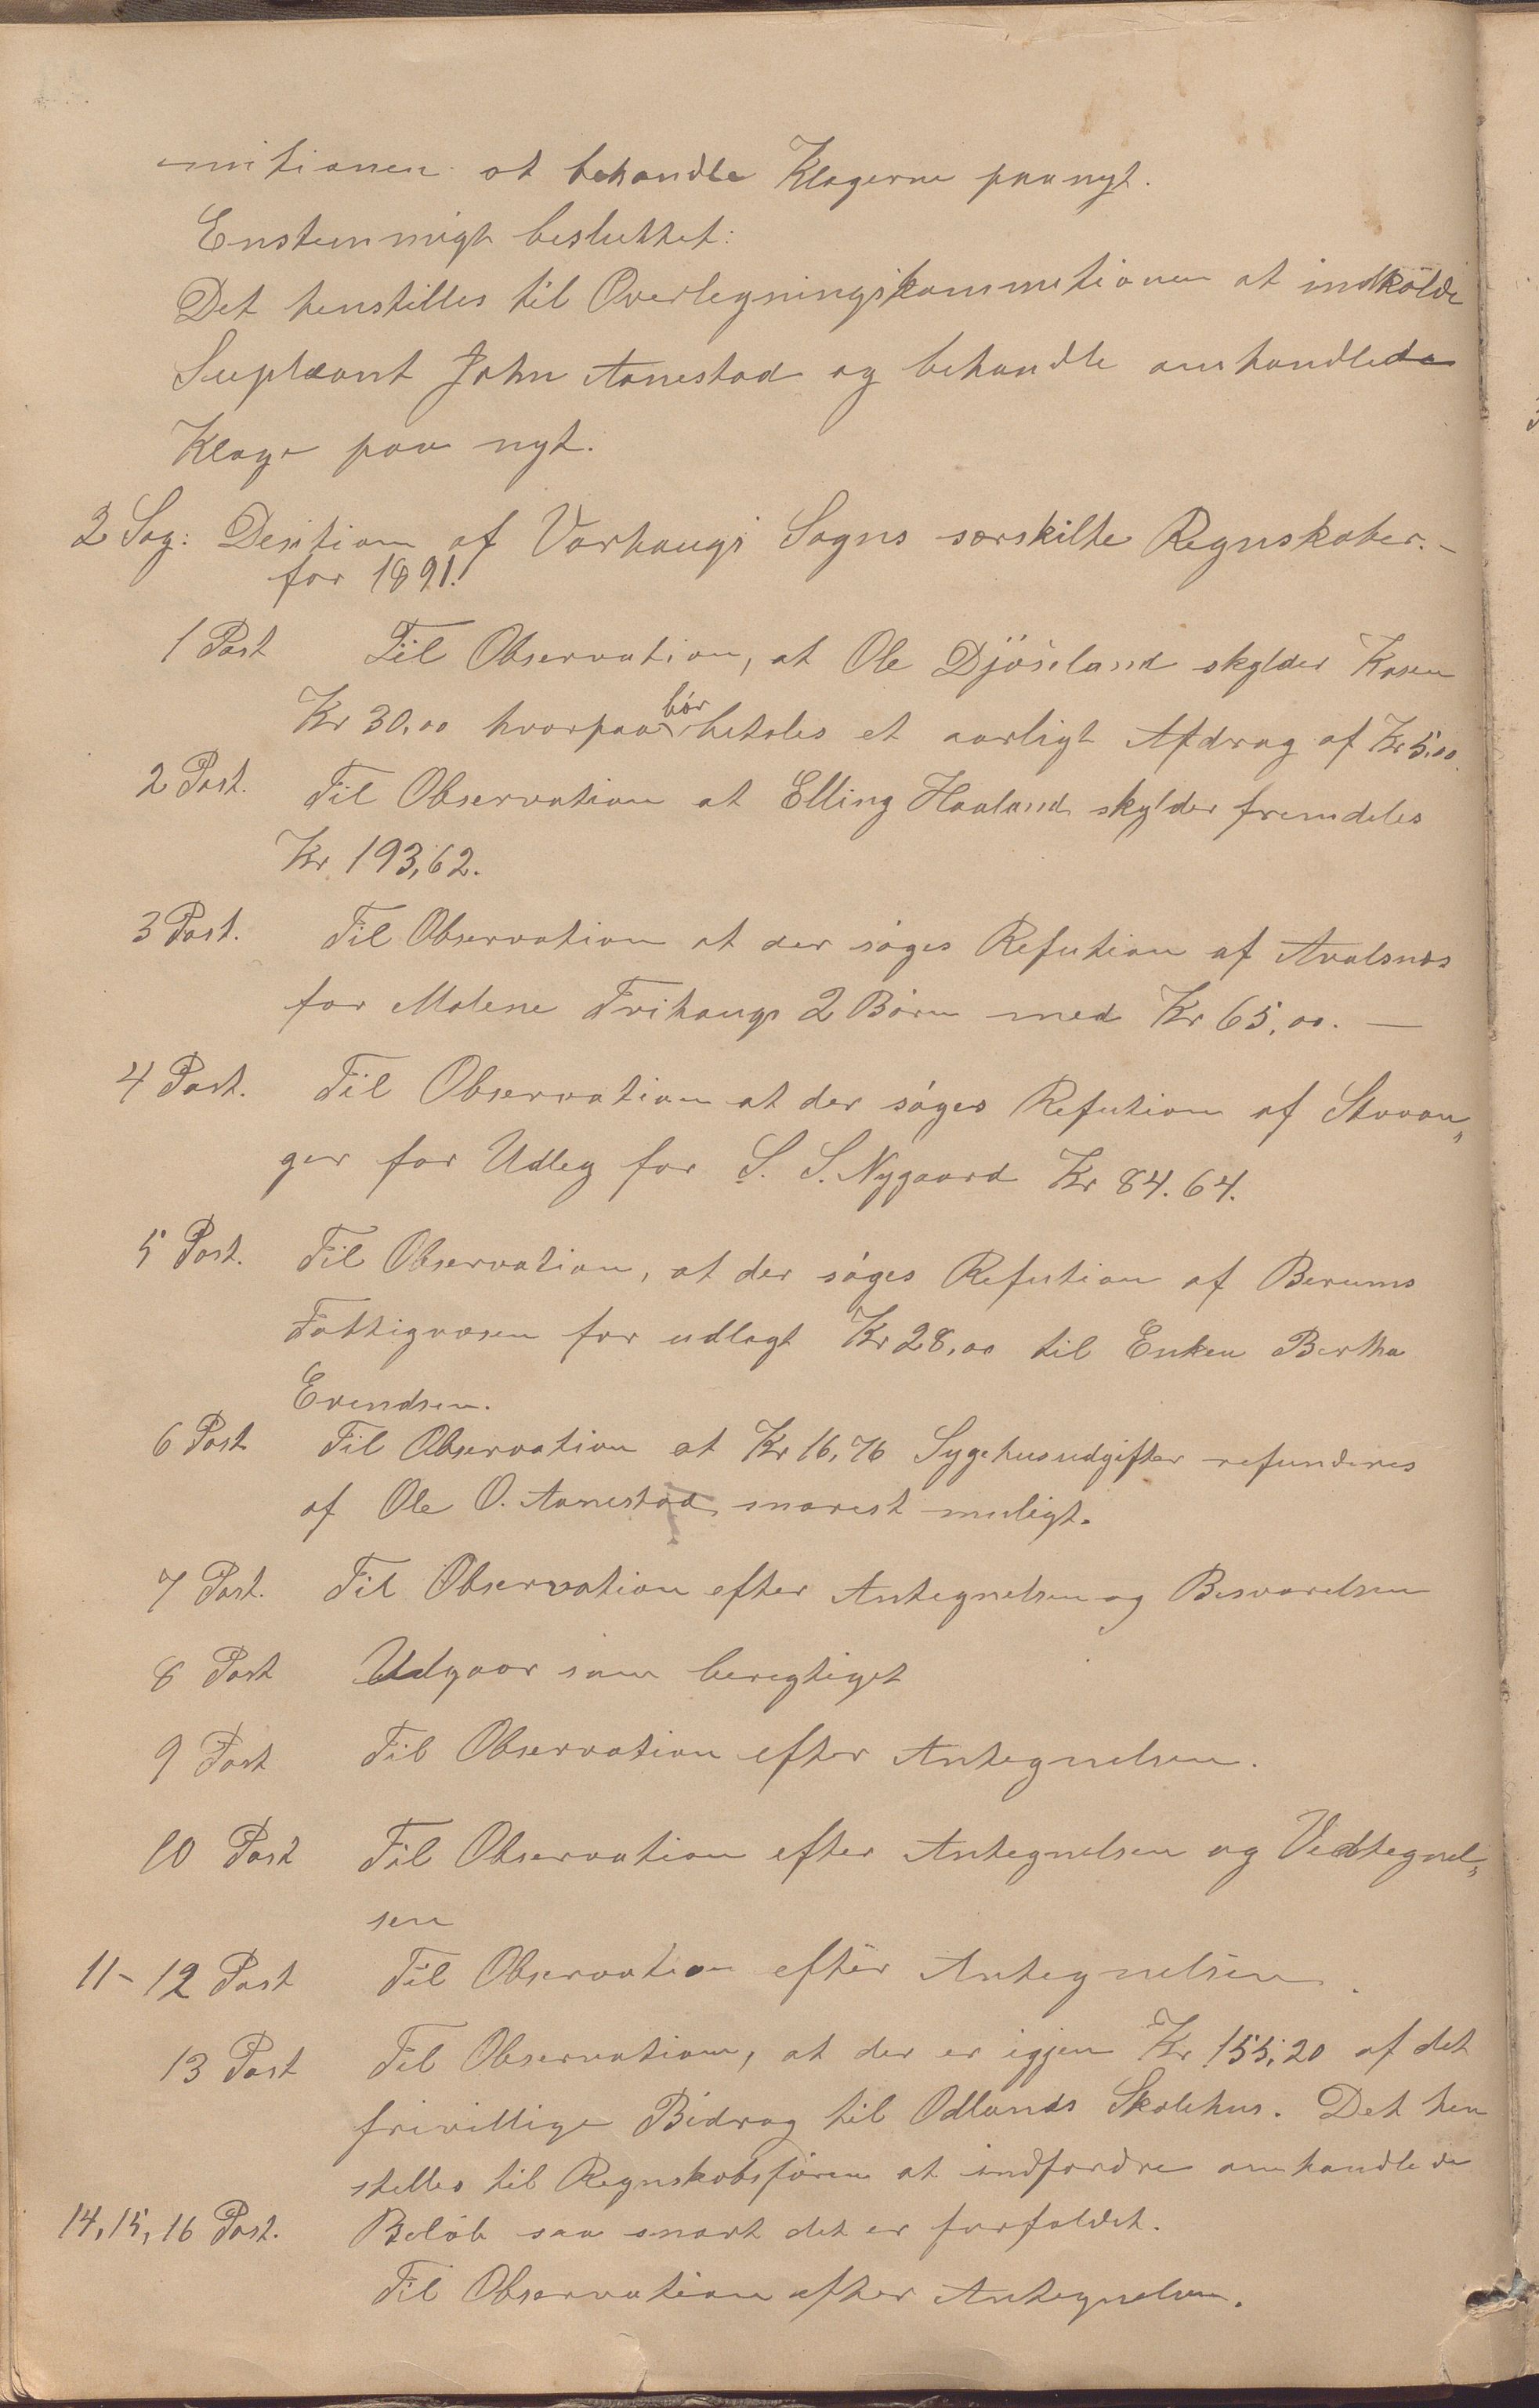 mitionen at behandle Klagerne paanyt.
Enstemmigt besluttet:
Det henstilles til Overlegningskommitionen at indkalde
Supleant John Aanestad og behandle omhandlede
Klage paa nyt.
2 Sag: Desition af Varhaugs Sogns særskilte Regnskaber. -
for 1891.
1 Post Til Observation, at Ole Djøseland skylder Kasen
Kr 30,00 hvorpaa bør betales et aarligt Afdrag af Kr 5,00.
2 Post. Til Observation at Elling Haaland skylder fremdeles
Kr 193,62.
3 Post. Til Observation at der søges Refution af Avalsnes
for Malene Trihaugs 2 Børn med Kr 65,00. —
4 Post. Til Observation at der søges Refution af Stavan„
ger for Udleg for S. S. Nygaard Kr 84.64.
5 Post. Til Observation, at der søges Refution af Berums
Fattigvæsen for udlagt Kr 28,00 til Enken Bertha
Evendsen.
6 Post Til Observation at Kr 16,76 Sygehusudgifter refunderes
af Ole O. Aanestad snarest muligt.
7 Post. Til Observation efter Antegnelsen og Besvarelsen
8 Post Udgaar som beregtiget
9 Post Til Observation efter Antegnelsen.
10 Post Til Observation efter Antegnelsen og Vedtegnel„
sen
11 - 12 Post Til Observation efter Antegnelsen.
13 Post Til Observation, at der er igjen Kr 155,20 af det
frivillige Bidrag til Odlands Skolehus. Det hen
stilles til Regnskabsføren at indfordre omhandlede
14, 15, 16 Post. Beløb saa snart det er forfaldet.
Til Observation efter Antegnelsen.